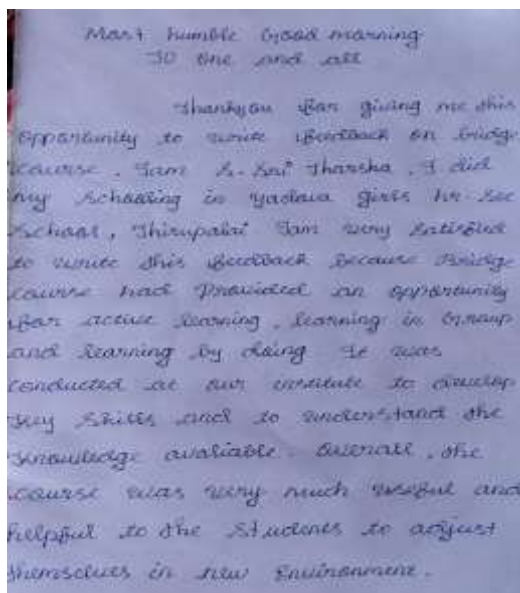 Most humble Good morning
To one and all
Thankyou for giving me this
opportunity to write feedback on bridge
course. Iam S. Sri Tharsha, I did
my schooling in Yadava girls hr. sec
School, Thirupalai Iam very satisfied
to write this feedback because Bridge
course had Provided an opportunity
for active learning, learning in Group
and learning by doing It was
conducted at our institute to develop
key skills and to understand the
knowledge avaliable. Overall, the
course was very much useful and
helpful to the students to adjust
themselves in new Environment.